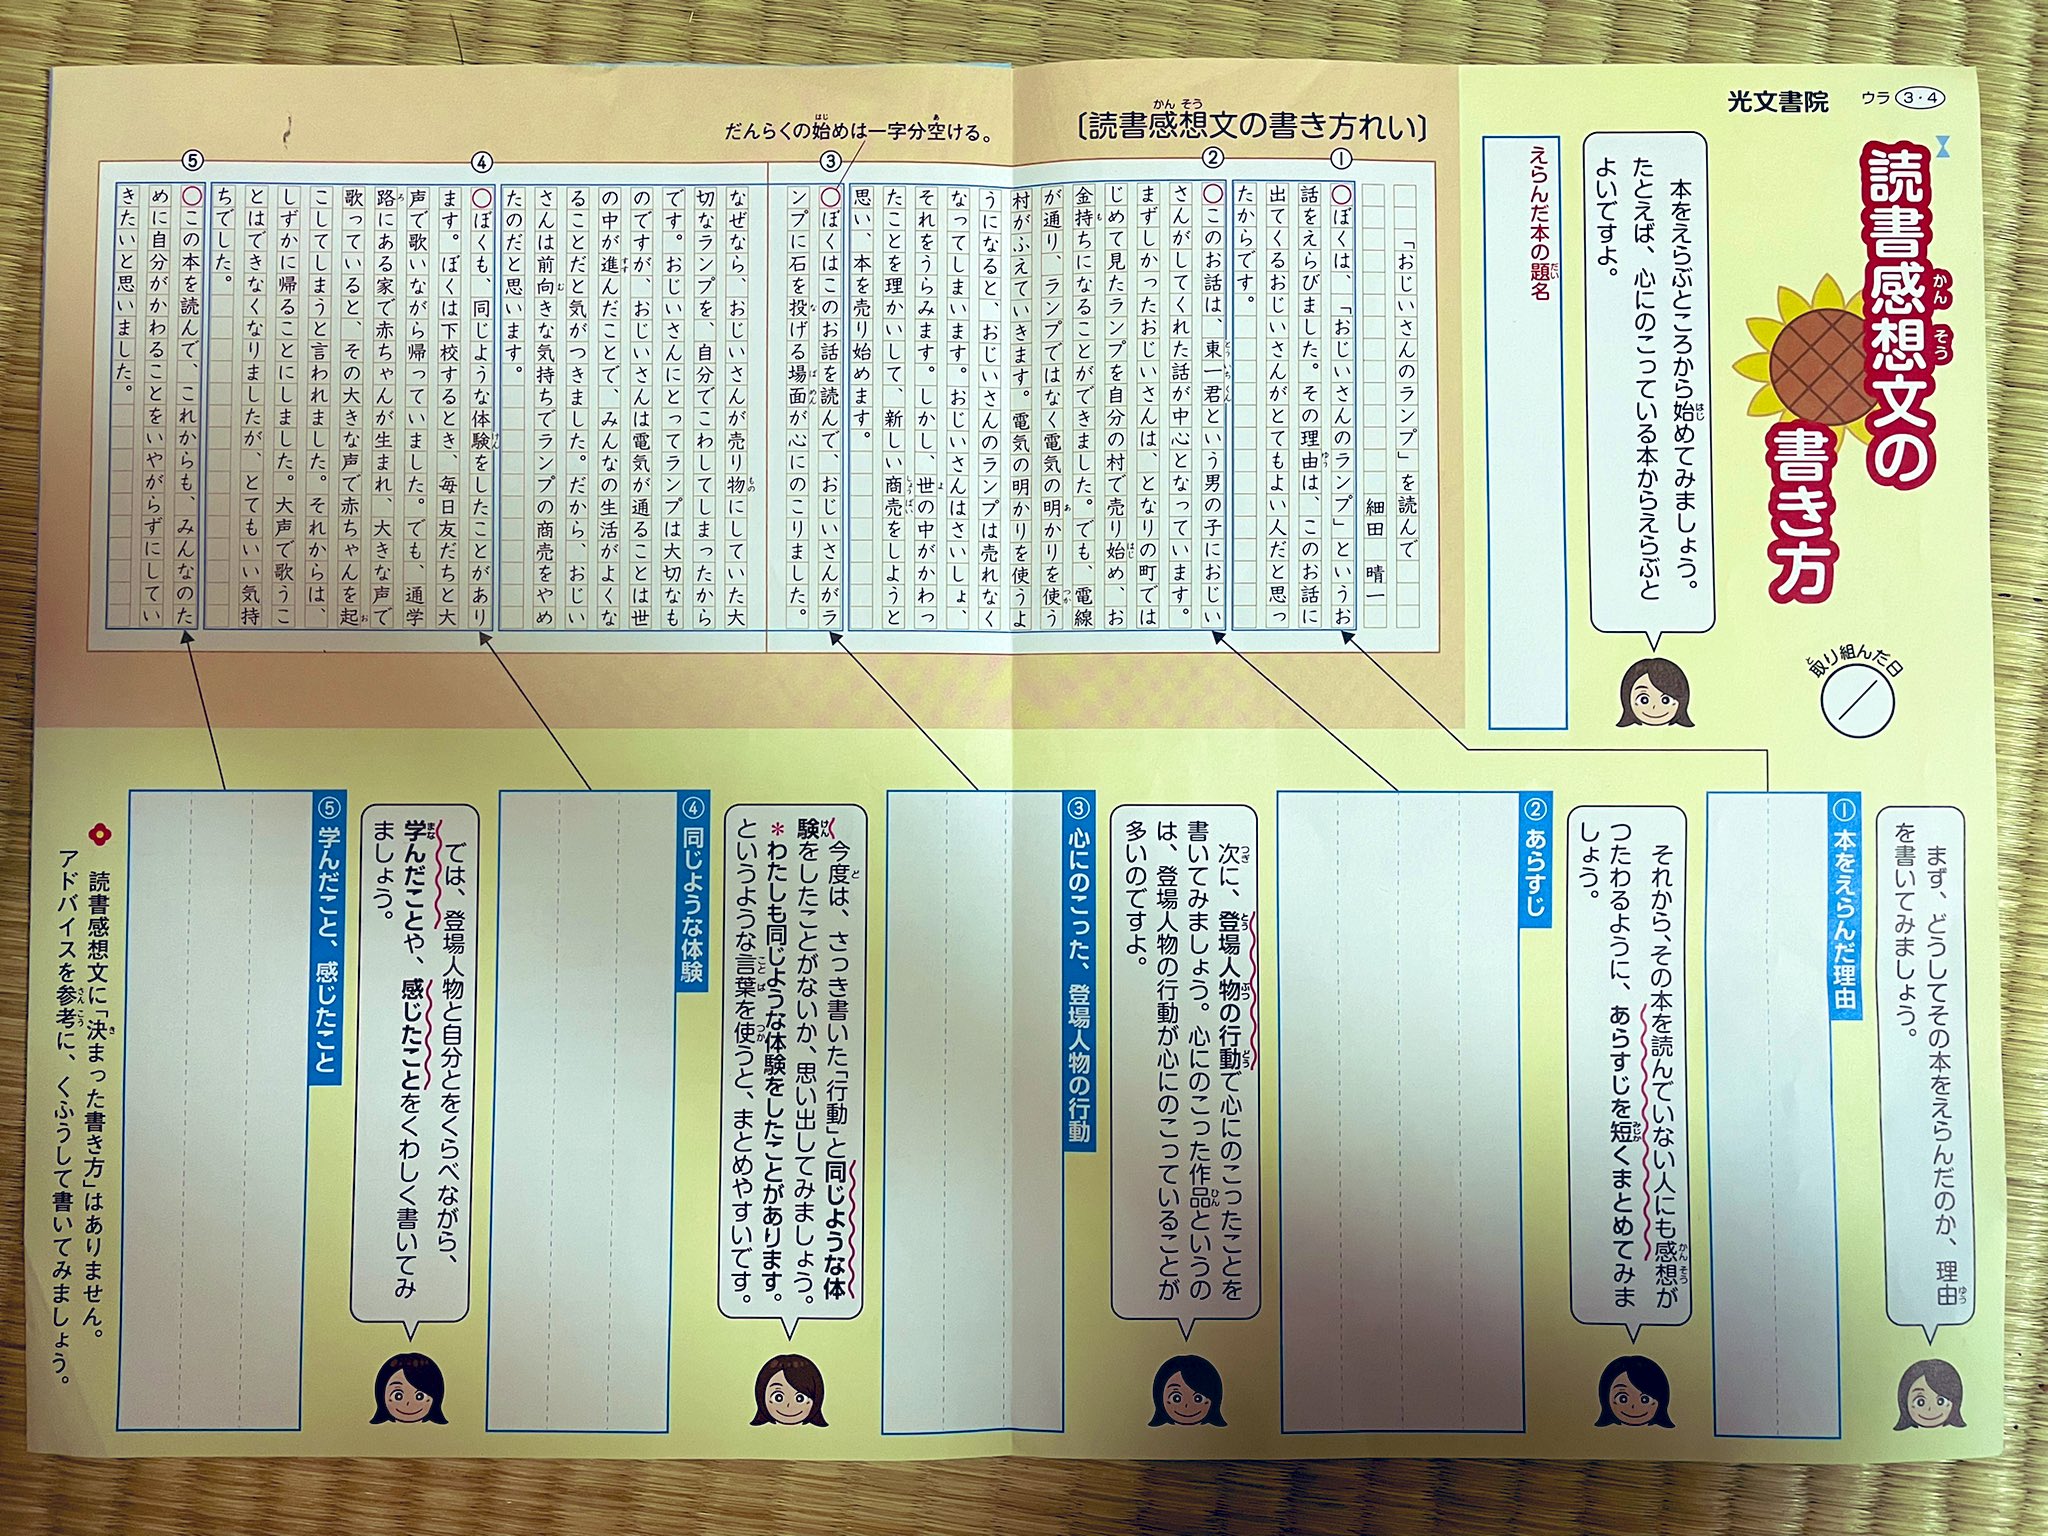 光文書院
ウラ 3・4
読書感想文の
書き方
取り組んだ日
本をえらぶところから始めてみましょう。
たとえば、心にのこっている本からえらぶと
よいですよ。
えらんだ本の題名
〔読書感想文の書き方れい〕
だんらくの始めは一字分空ける。
「おじいさんのランプ」を読んで
細田 晴一
①
○ぼくは、「おじいさんのランプ」というお
話をえらびました。その理由は、このお話に
出てくるおじいさんがとてもよい人だと思っ
たからです。
②
○このお話は、東一君という男の子におじい
さんがしてくれた話が中心となっています。
まずしかったおじいさんは、となりの町では
じめて見たランプを自分の村で売り始め、お
金持ちになることができました。でも、電線
が通り、ランプではなく電気の明かりを使う
村がふえていきます。電気の明かりを使うよ
うになると、おじいさんのランプは売れなく
なってしまいます。おじいさんはさいしょ、
それをうらみます。しかし、世の中がかわっ
たことを理かいして、新しい商売をしようと
思い、本を売り始めます。
③
○ぼくはこのお話を読んで、おじいさんがラ
ンプに石を投げる場面が心にのこりました。
なぜなら、おじいさんが売り物にしていた大
切なランプを、自分でこわしてしまったから
です。おじいさんにとってランプは大切なも
のですが、おじいさんは電気が通ることは世
の中が進んだことで、みんなの生活がよくな
ることだと気がつきました。だから、おじい
さんは前向きな気持ちでランプの商売をやめ
たのだと思います。
④
○ぼくも、同じような体験をしたことがあり
ます。ぼくは下校するとき、毎日友だちと大
声で歌いながら帰っていました。でも、通学
路にある家で赤ちゃんが生まれ、大きな声で
歌っていると、その大きな声で赤ちゃんを起
こしてしまうと言われました。それからは、
しずかに帰ることにしました。大声で歌うこ
とはできなくなりましたが、とてもいい気持
ちでした。
⑤
○この本を読んで、これからも、みんなのた
めに自分がかわることをいやがらずにしてい
きたいと思いました。
まず、どうしてその本をえらんだのか、理由
を書いてみましょう。
① 本をえらんだ理由
それから、その本を読んでいない人にも感想が
つたわるように、あらすじを短くまとめてみま
しょう。
② あらすじ
次に、登場人物の行動で心にのこったことを
書いてみましょう。心にのこった作品というの
は、登場人物の行動が心にのこっていることが
多いのですよ。
③ 心にのこった、登場人物の行動
今度は、さっき書いた「行動」と同じような体
験をしたことがないか、思い出してみましょう。
＊わたしも同じような体験をしたことがあります。
というような言葉を使うと、まとめやすいです。
④ 同じような体験
では、登場人物と自分とをくらべながら、
学んだことや、感じたことをくわしく書いてみ
ましょう。
⑤ 学んだこと、感じたこと
読書感想文に「決まった書き方」はありません。
アドバイスを参考に、くふうして書いてみましょう。